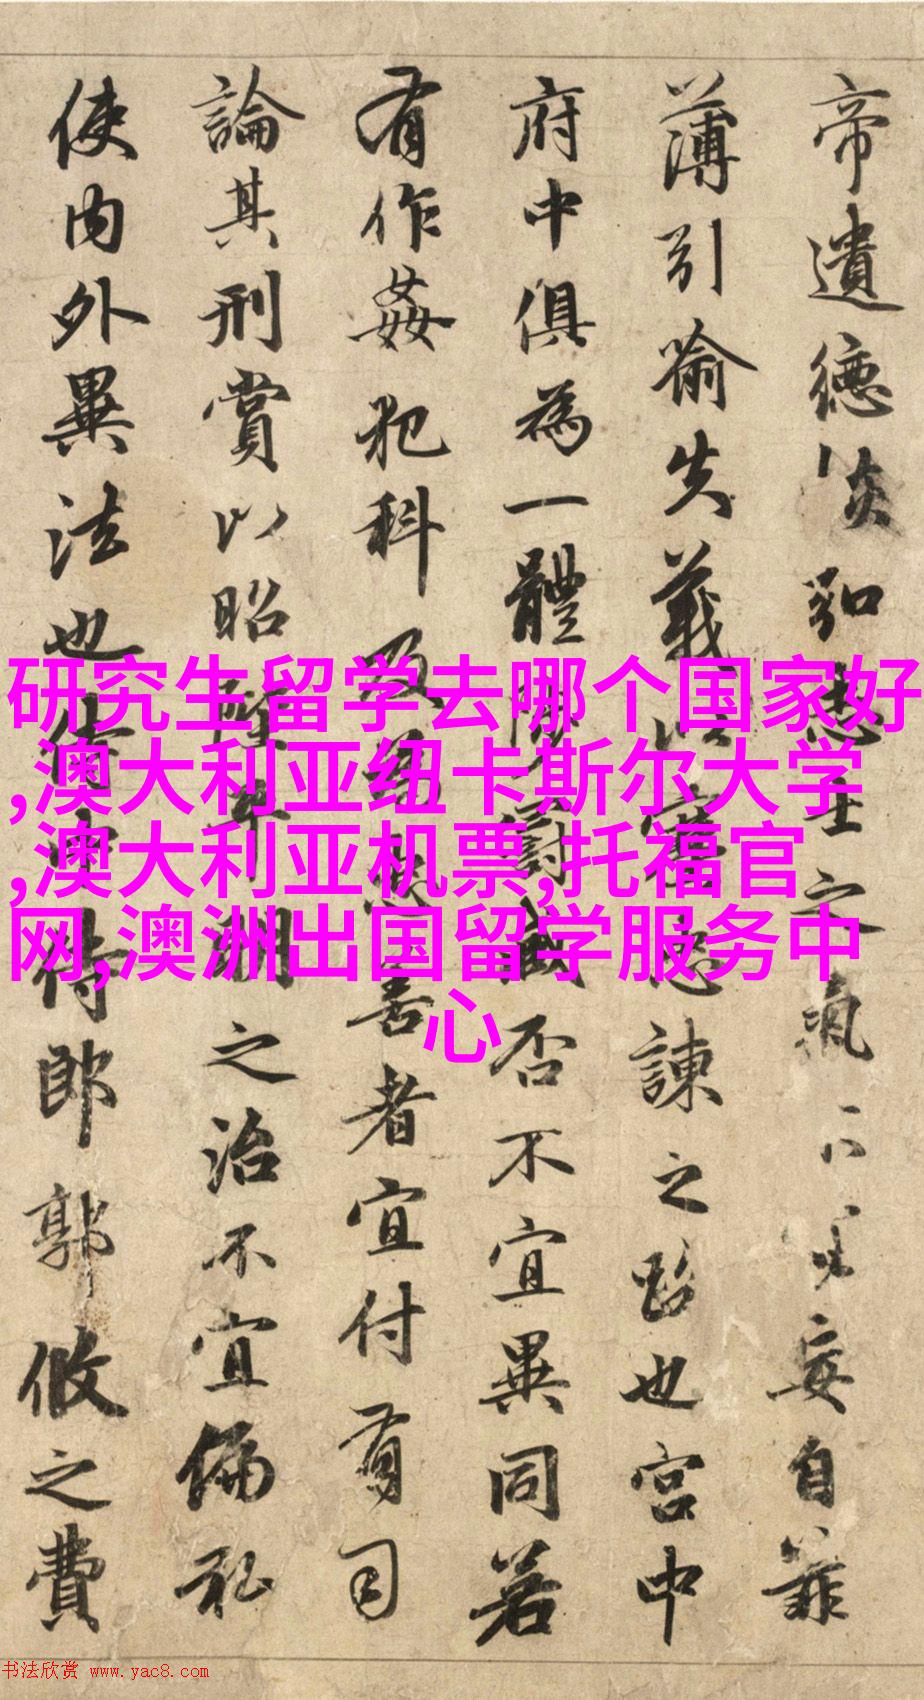 帝遺德恢弘志士之氣不宜妄自菲
薄引喻失義以塞忠諫之路也宮中
府中俱為一體陟罰臧否不宜異同若
有作姦犯科及為忠善者宜付有司
論其刑賞以昭陛平明之治不宜偏私
使內外異法也侍中侍郎郭攸之費
研究生留学去哪个国家好
,澳大利亚纽卡斯尔大学
,澳大利亚机票,托福官
网,澳洲出国留学服务中
心
书法欣赏 www.yac8.com